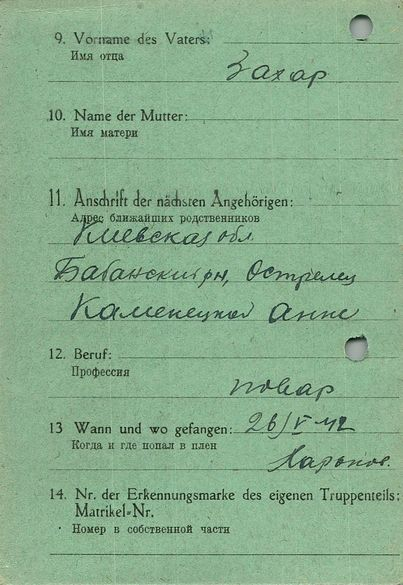 9. Vorname des Vaters:
Имя отца
Захар
10. Name der Mutter:
Имя матери
11. Anschrift der nächsten Angehörigen:
Адрес ближайших родственников
Киевская обл.
Бабанский рн, Острелец
Каменецкой Анне
12. Beruf:
Профессия
повар
13 Wann und wo gefangen: 26/V 42
Когда и где попал в плен
Харьков.
14. Nr. der Erkennungsmarke des eigenen Truppenteils:
Matrikel-Nr.
Номер в собственной части